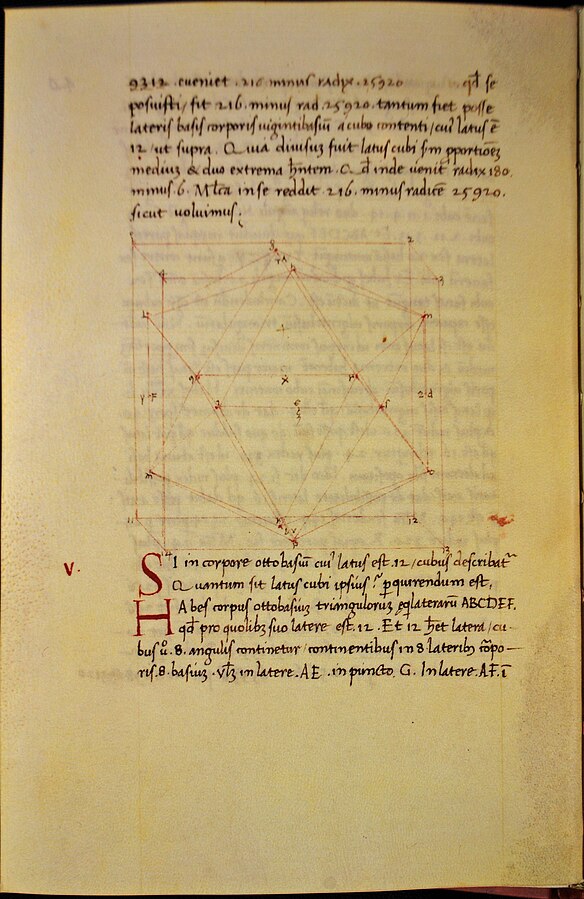 9312. eveniet .216 minus radix .25920 qđ se
posuisti / fit 216. minus rad. 25920. tantum fiet posse
lateris basis corporis vigintibasiū a cubo contenti / cuiꝰ latus ē
12 / ut supra. Quia divisus fuit latus cubi s̄m pportiōez
mediuz & duo extrema h̄ntem. Qđ inde venit radix 180.
minus 6. Ml̄ca in se reddit 216. minus radice 25920.
sicut voluimus;
1 8 2
4 h 3
L m
g x p
y F 2 d
q s
m o
11 12
14 p 13
v.
SI in corpore ottobasiū cuiꝰ latus est .12 / cubus describat᷑
Quantum sit latus cubi ipsius? pqurendum est.
HAbes corpus ottobasiuz triangulorus eqlaterarū ABCDEF.
qđ pro quolibz suo latere est .12. Et 12 h̄et latera / cu-
bus ů .8. angulis continetur / continentibus in 8 lateribꝰ cōpo-
ris .8. basiuz. vlz in latere .AE .in puncto .G. In latere .AF. ī